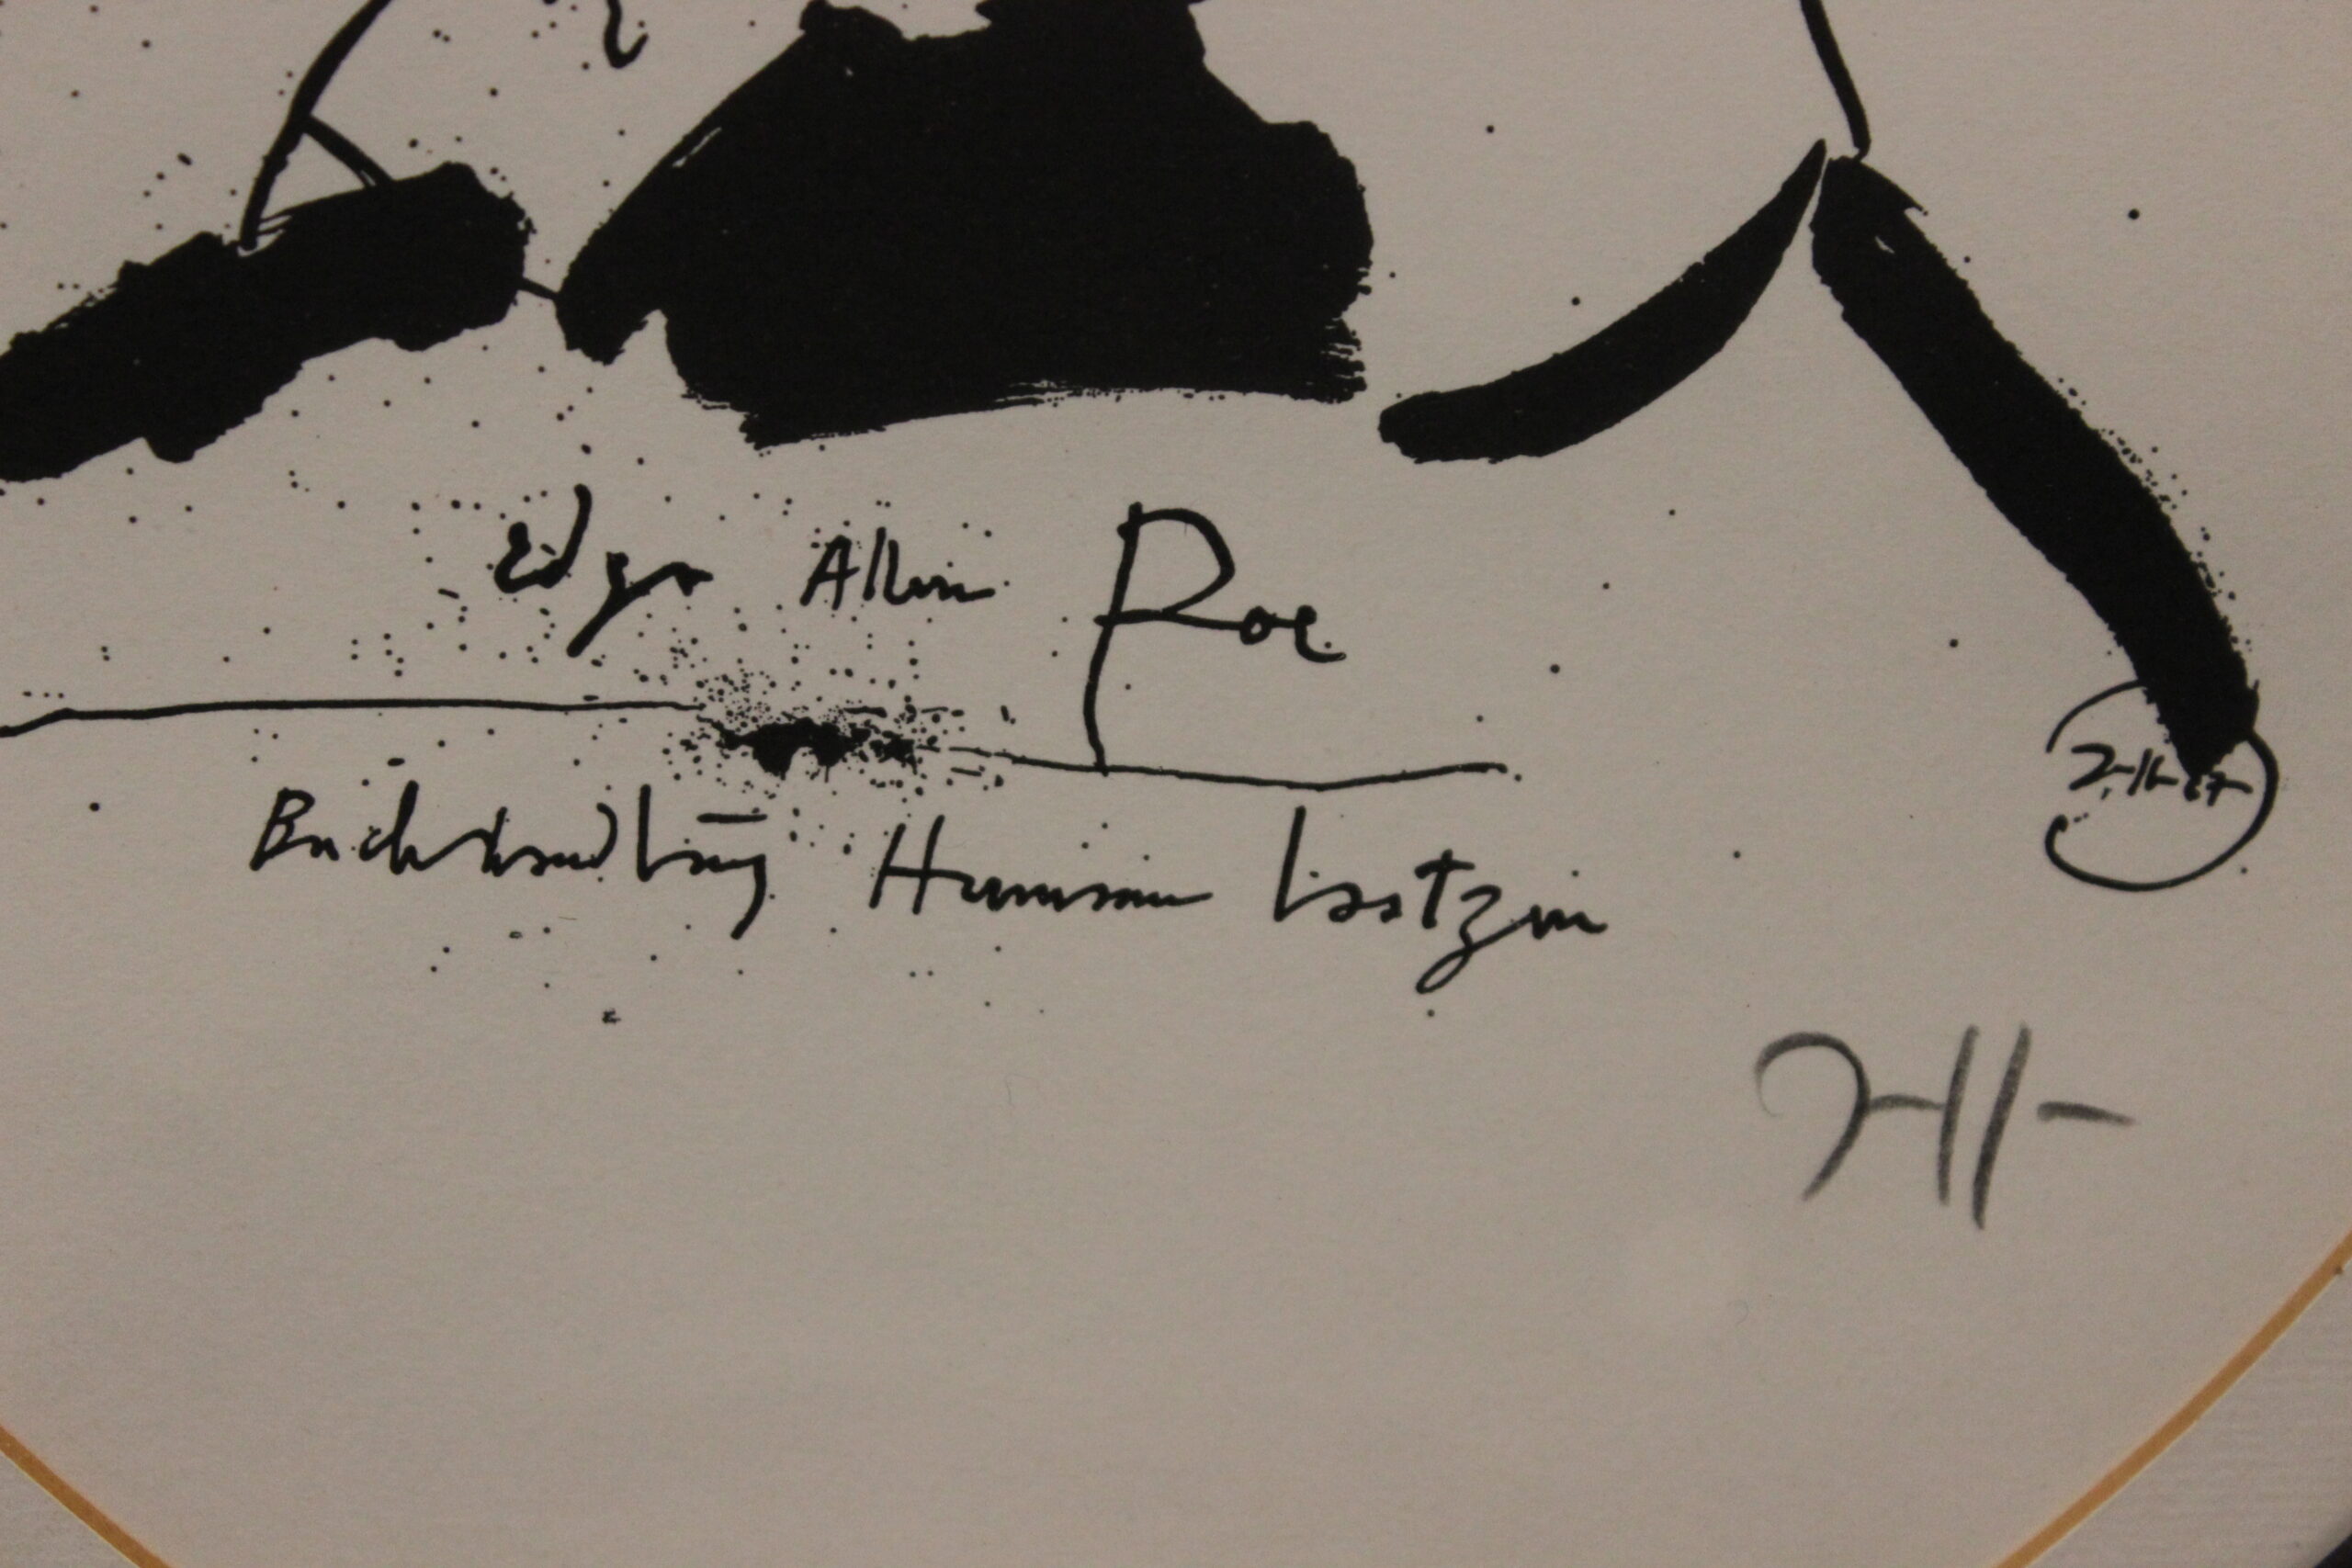 Edgar Allan Poe
Buchhandlung Hermann Laatzen